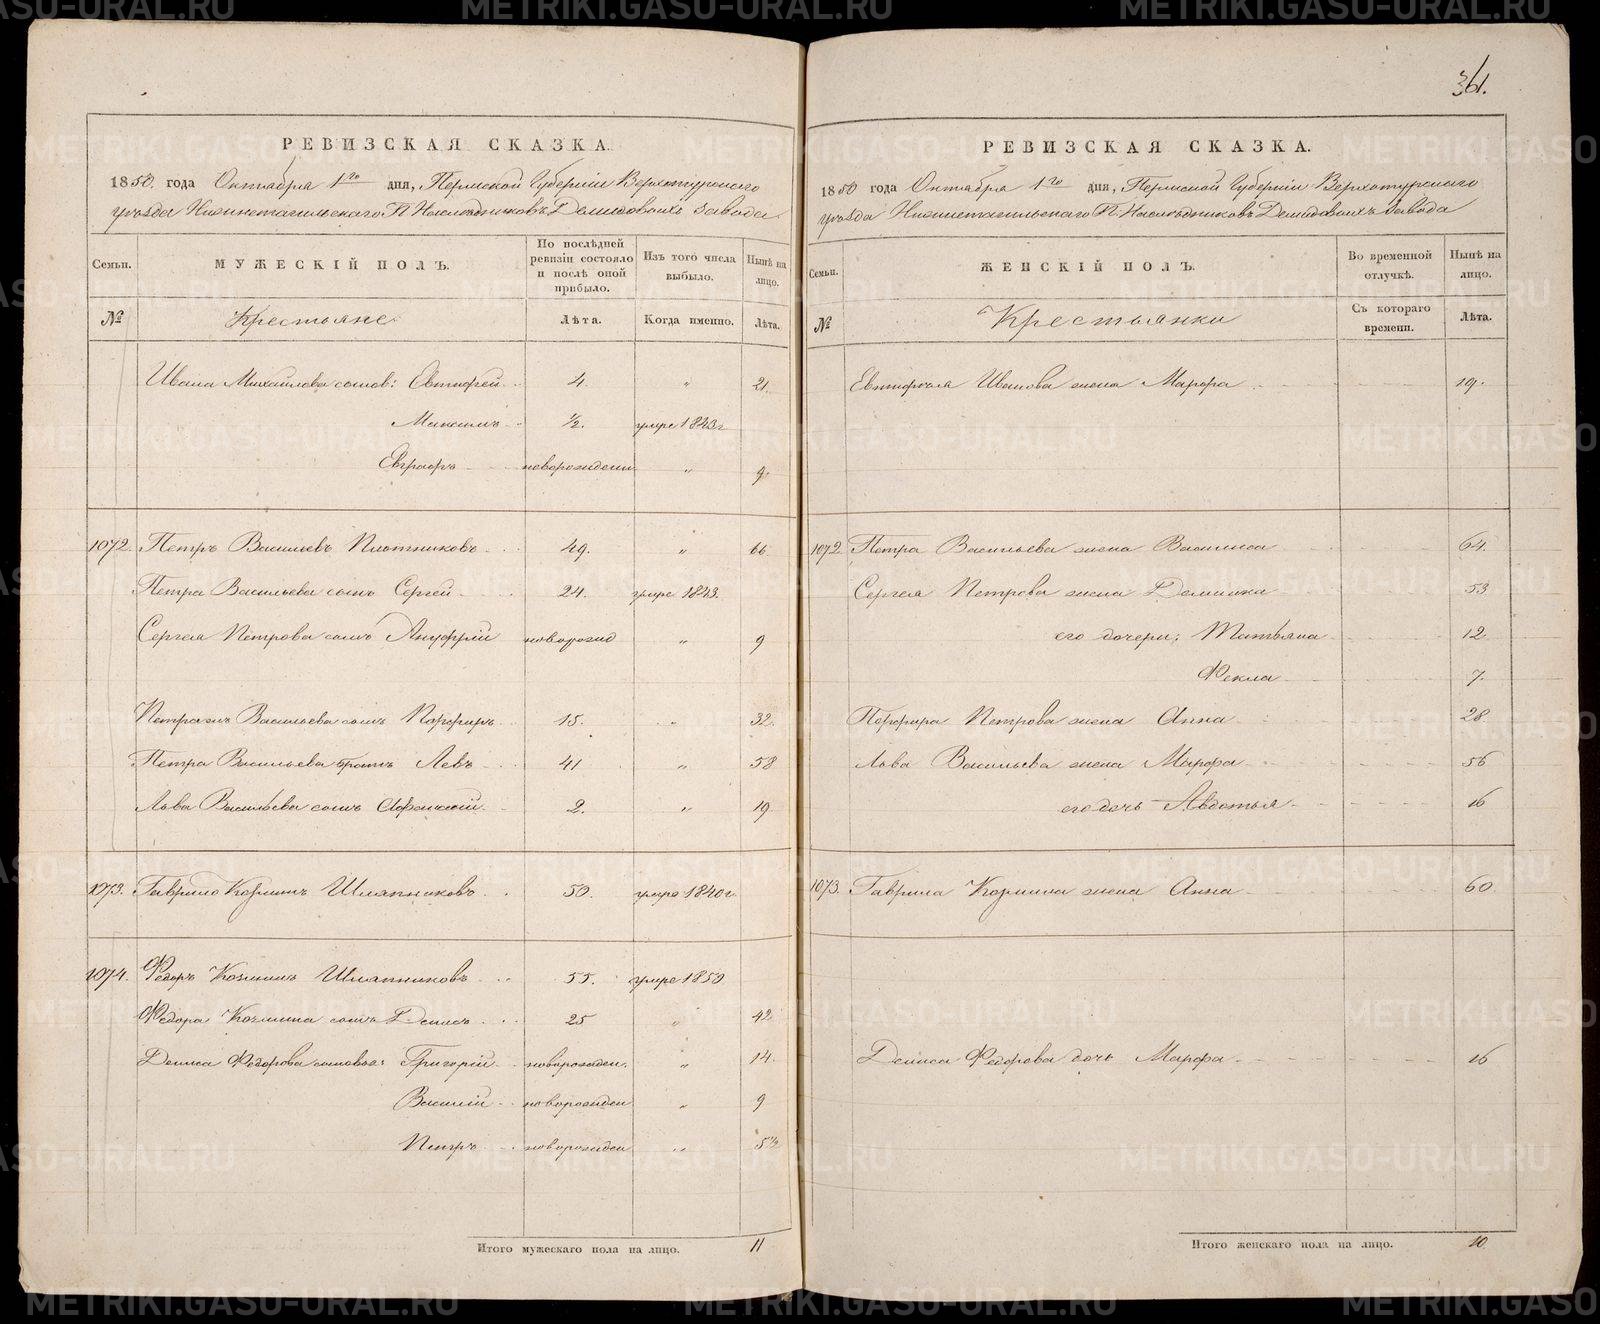 361.
РЕВИЗСКАЯ СКАЗКА
1850 года Октября 1го дня, Пермской Губернiи Верхотурскаго
уѣзда Нижнетагильскаго П. Наслѣдниковъ Демидовыхъ завода
Семьи. МУЖЕСКIЙ ПОЛЪ. По послѣдней ревизiи состояло и послѣ оной прибыло. Изъ того числа выбыло. Нынѣ на лицо.
№ Крестьяне Лѣта. Когда именно. Лѣта.
Ивана Михайлова сынов: Евтифей 4. " 21.
Максимъ ½. умре 1843г
Евграфъ новорожден " 9
1072. Петръ Васильевъ Плотниковъ 49. " 66
Петра Васильева сынъ Сергей 24. умре 1843.
Сергея Петрова сынъ Ануфрiй новорожд " 9
Петра жъ Васильева сынъ Порфиръ 15. " 32.
Петра Васильева братъ Левъ 41 " 58
Льва Васильева сынъ Афанасiй 2. " 19
1073. Гаврило Козминъ Шляпниковъ 50. умре 1840г.
1074. Федоръ Козминъ Шляпниковъ 55. умре 1850
Федора Козмина сынъ Денисъ 25 " 42
Дениса Федорова сыновья: Григорiй новорожден. " 14.
Василiй новорожден " 9
Петръ новорожден " 5½
Итого мужескаго пола на лицо. 11
РЕВИЗСКАЯ СКАЗКА.
1850 года Октября 1го дня, Пермской Губернiи Верхотурскаго
уѣзда Нижнетагильскаго П. Наслѣдниковъ Демидовыхъ завода
Семьи. ЖЕНСКIЙ ПОЛЪ. Во временной отлучкѣ. Нынѣ на лицо.
№ Крестьянки Съ котораго времени. Лѣта.
Евтифея Иванова жена Марфа 19.
1072. Петра Васильева жена Василиса 64.
Сергея Петрова жена 53
его дочери; Татьяна 12
Фекла 7.
Порфира Петрова жена Анна 28
Льва Васильева жена Марфа 56
его дочь Авдотья 16
1073. Гаврила Козмина жена Анна 60
Дениса Федорова дочь Марфа 16
Итого женскаго пола на лицо. 10
METRIKI.GASO-URAL.RU